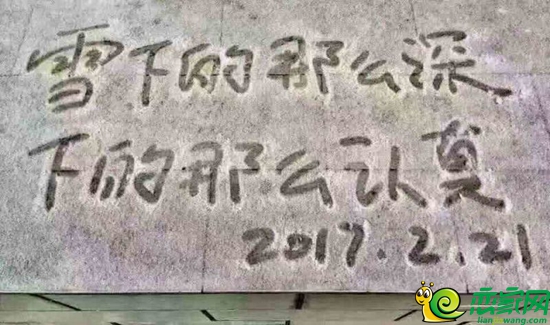 雪下的那么深
下的那么认真
2017.2.21
恋家网
lian wang.com